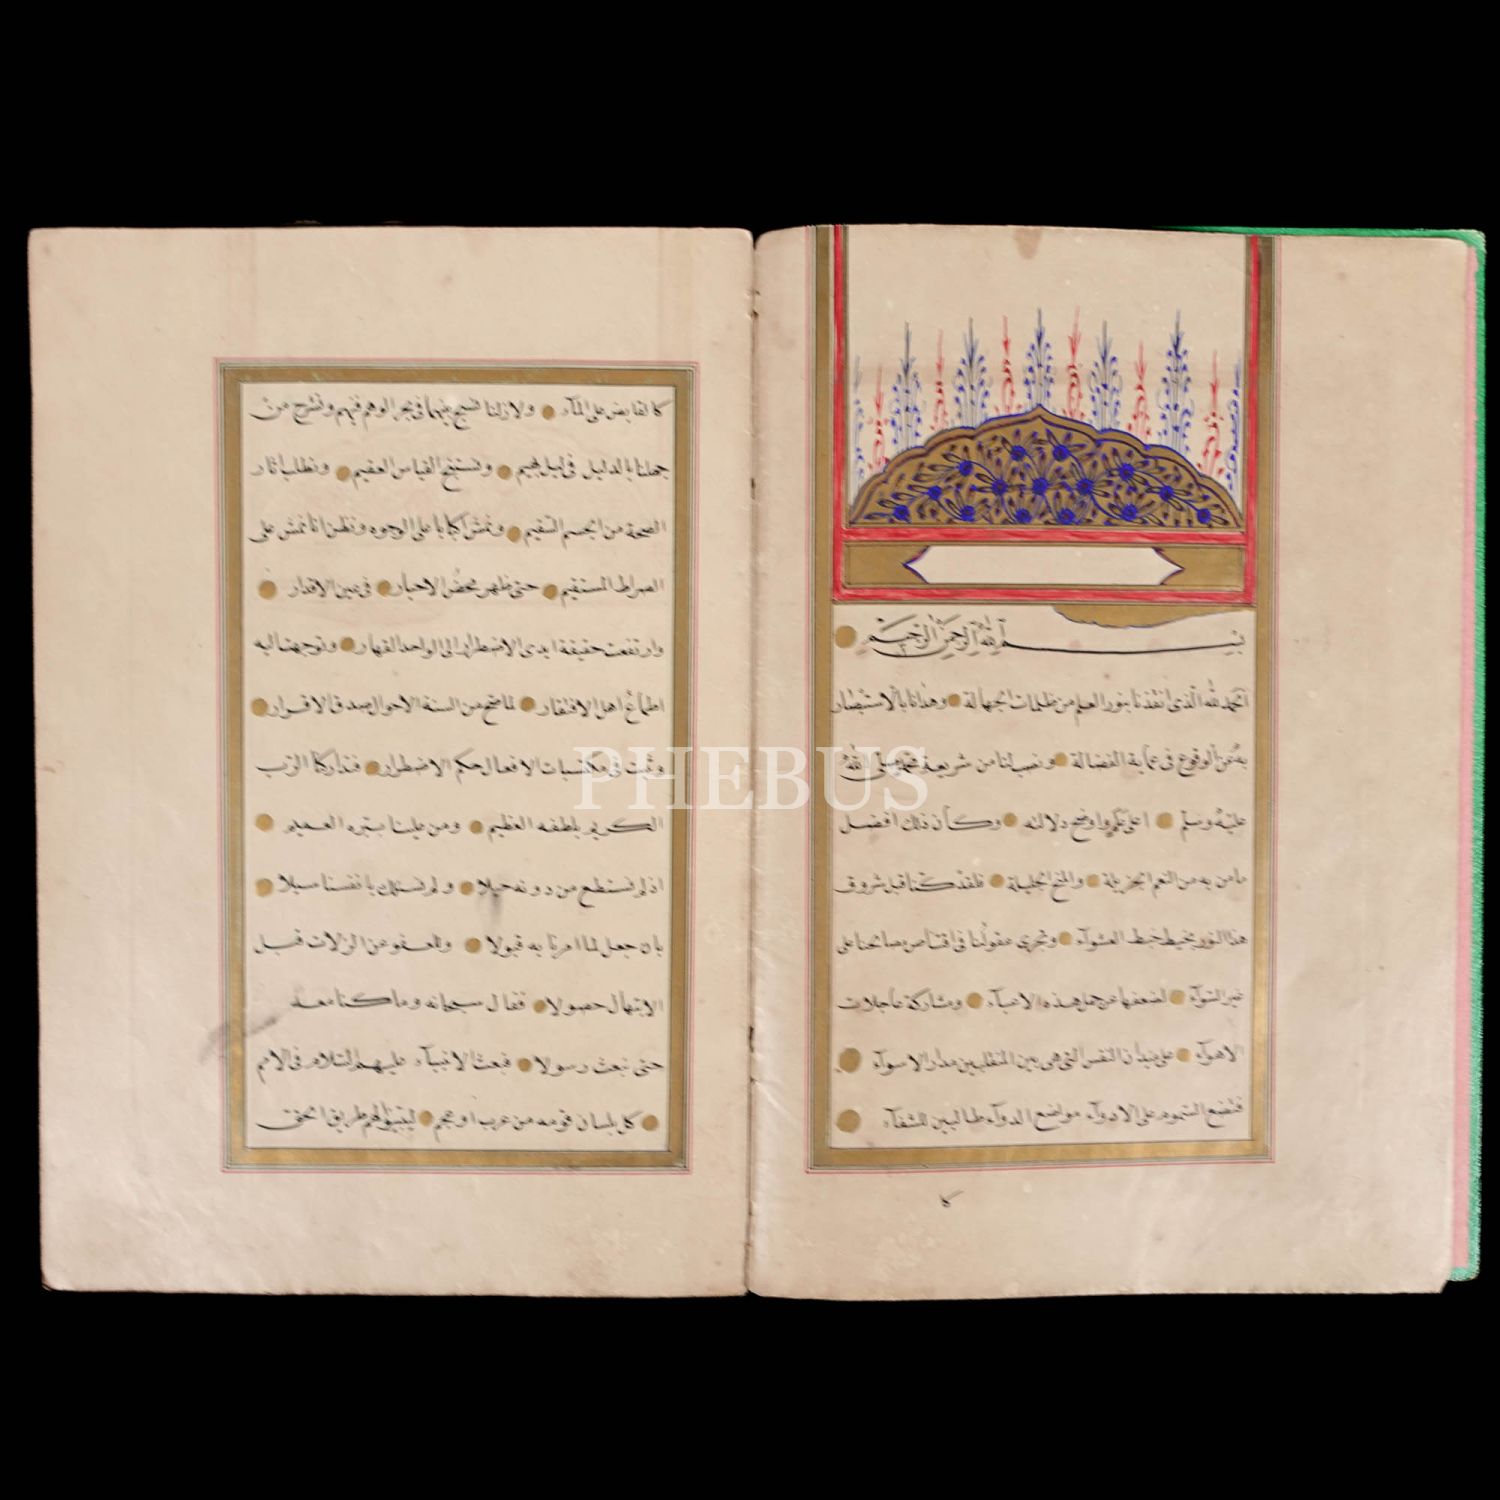 بسم الله الرحمن الرحيم
الحمد لله الذى انقذنا بنور العلم من ظلمات الجهالة وهدانا بالاستبصار
به عن الوقوع فى عماية الضلالة ونصب لنا من شريعة محمد صلى الله
عليه وسلم اعلى علم واوضح دلالته وكان ذلك افضل
ما من به من النعم الجزيلة والمنح الجليلة فلقد كنا قبل شروق
هذا النور نخبط خبط العشوآء وتجرى عقولنا فى اقتناص مصالحنا على
غير السوآء لضعفها عن حمل هذه الاعبآء ومشاركة عاجلات
الاهوآء على ميدان النفس التى هى بين المنقلبين مدار الاسوآء
فنضع السموم على الادوآء مواضع الدوآء طالبين للشفآء
كا
كالقابض على المآء ولا زلنا نسبح بينهما فى بحر الوهم فنهيم ونسرح من
جهلنا بالدليل فى ليل بهيم ونستنتج القياس العقيم ونطلب اثار
الصحة من الجسم السقيم ونمشى اكبابا على الوجوه ونظن انا نمشى على
الصراط المستقيم حتى ظهر محض الاجبار فى عين الاقدار
وارتفعت حقيقة ايدى الاضطرار الى الواحد القهار وتوجهت اليه
اطماع اهل الافتقار لما صح من السنة الاحوال صدق الاقرار
وثبت فى مكتسبات الافعال حكم الاضطرار فتداركنا الرب
الكريم بلطفه العظيم ومن علينا ببره العميم
اذ لم نستطع من دونه حيلا ولم نستلك بانفسنا سبلا
بان جعل لنا امرنا به قبولا وللعفو عن الزلات قبل
الابتهال حصولا فقال سبحانه وما كنا معذ
حتى نبعث رسولا فبعث الانبيآء عليهم السلام فى الامم
كل بلسان قومه من عرب او عجم ليتبينوا لهم طريق الحق
PHEBUS